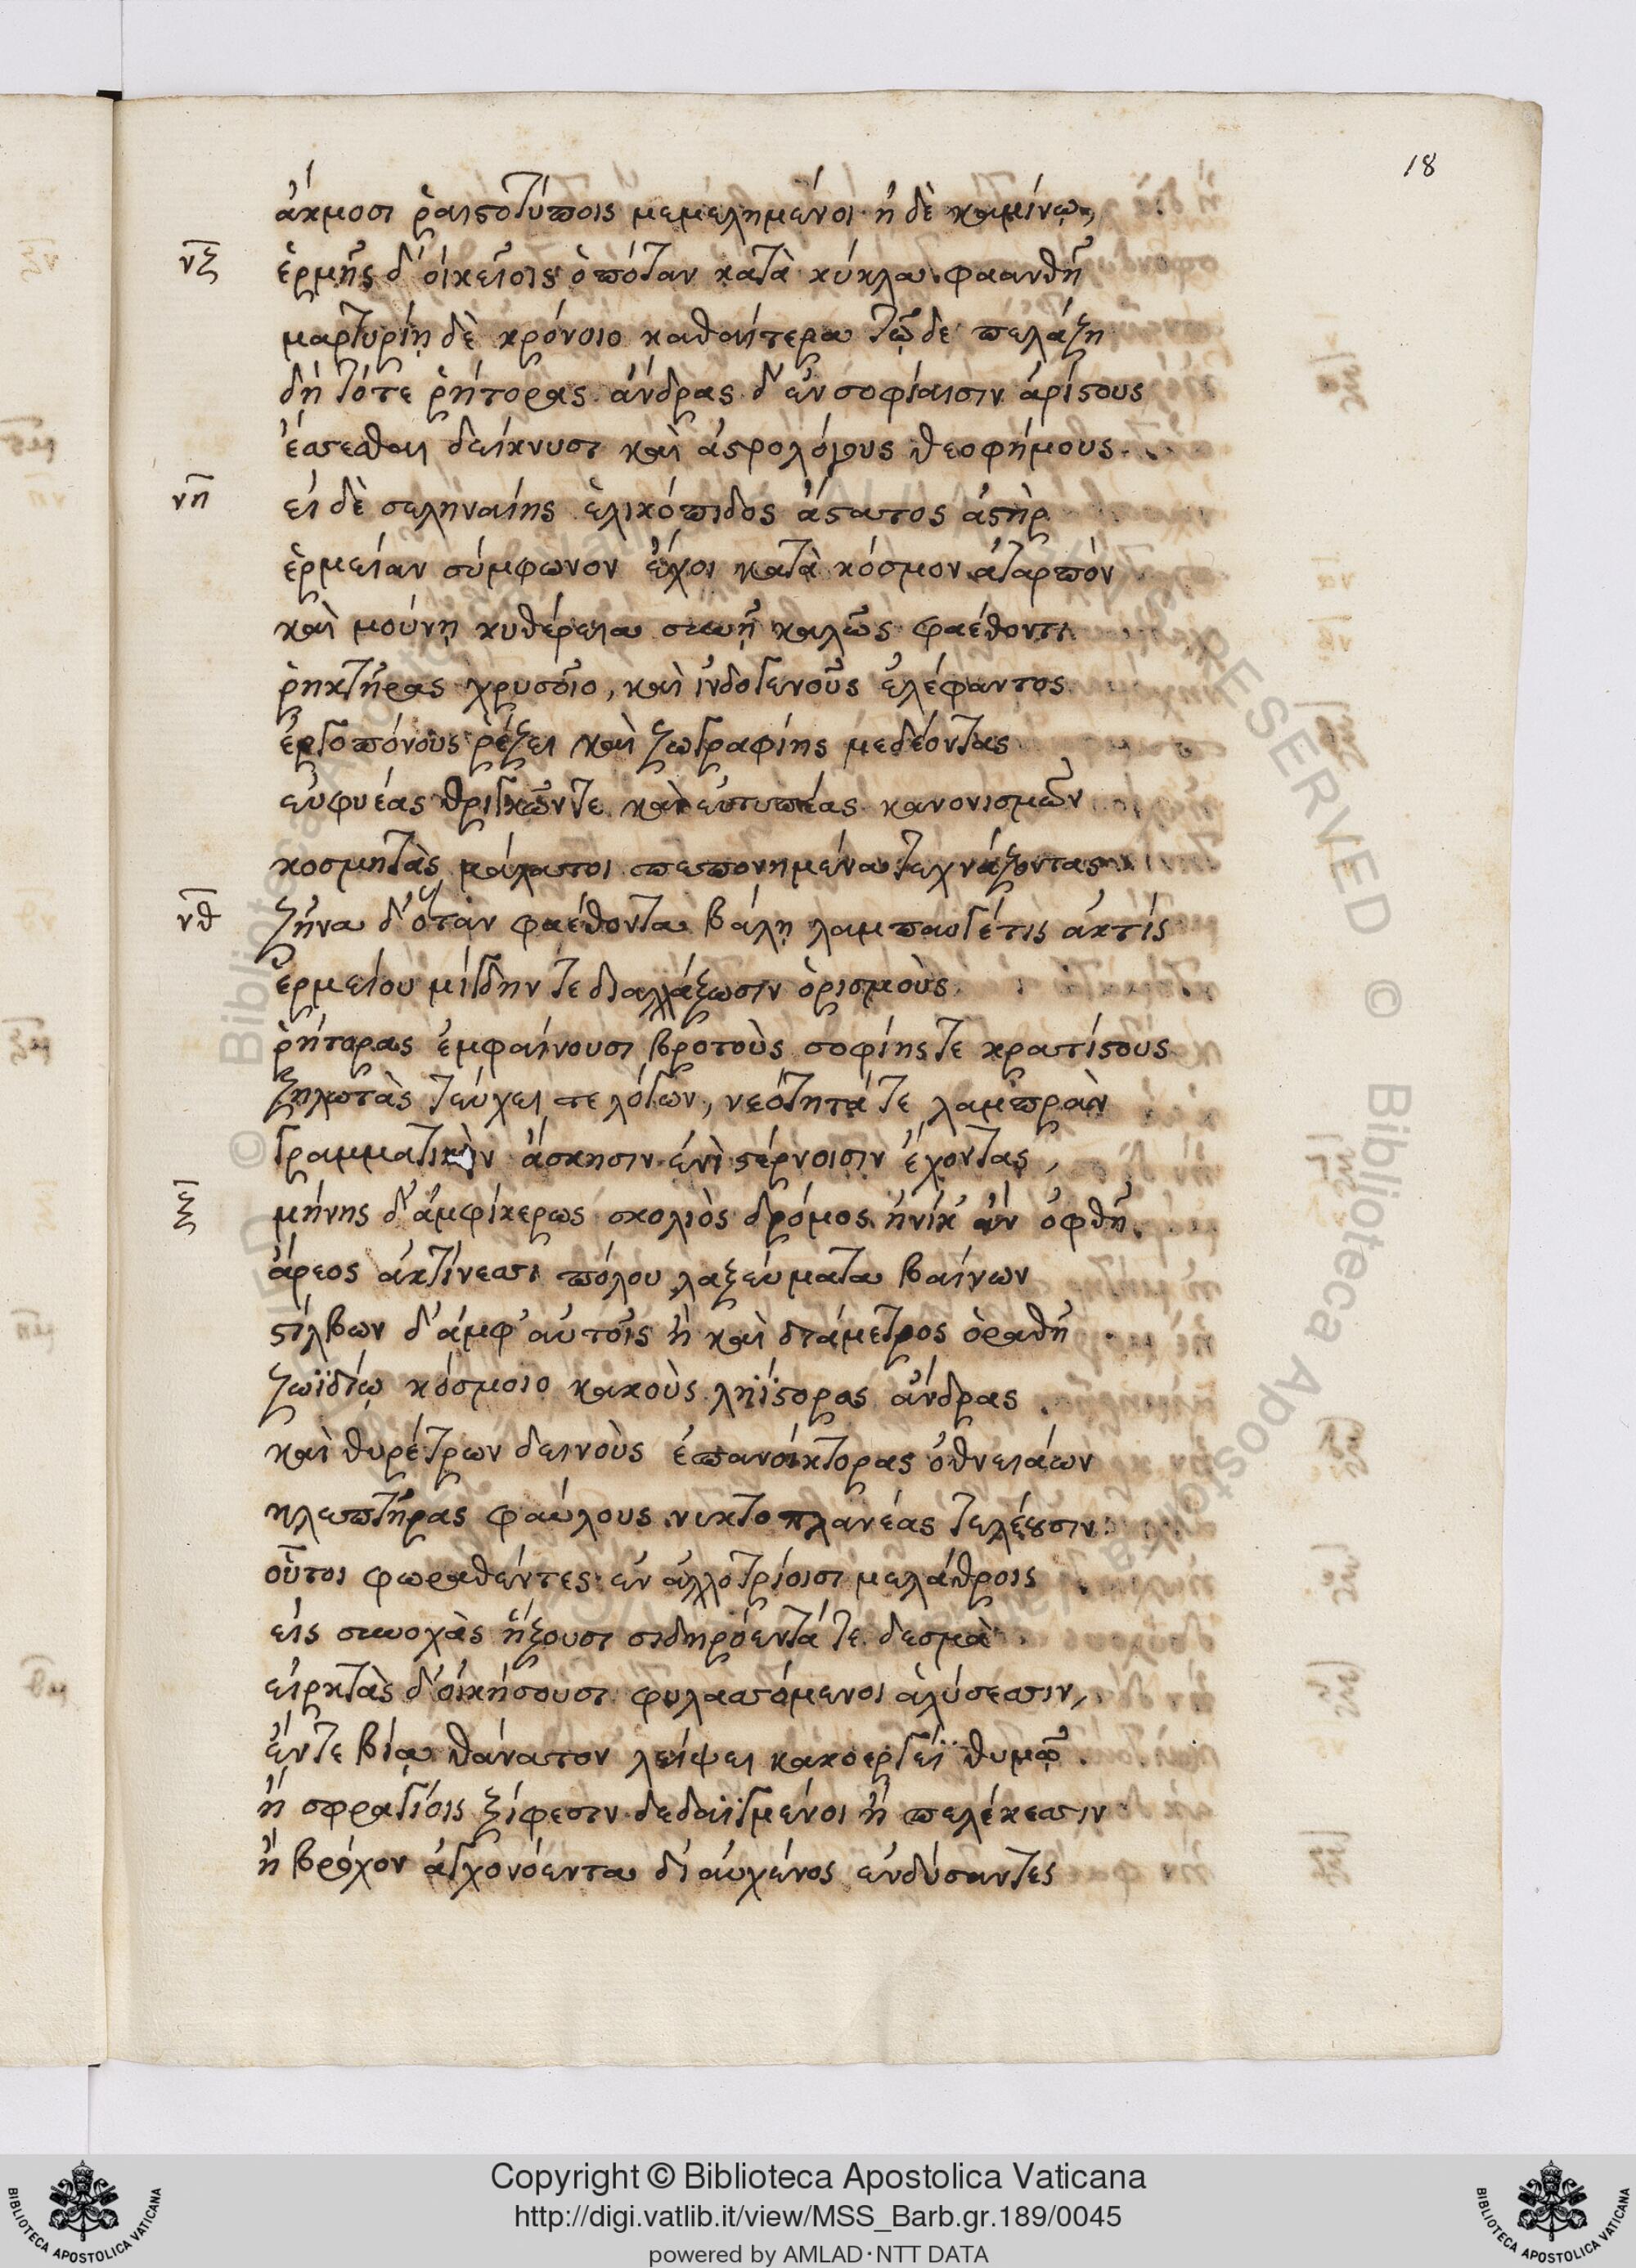 18
ἄκμοσι ῥαιστοτύποις μεμελημένοι ἠδὲ καμίνω,
νζ ἑρμῆς δ' οἰκείοις ὁπόταν κατὰ κύκλα φαανθῆ
μαρτυρίη δὲ κρόνοιο καθαίτερα τῷδε πελάζη
δὴ τότε ῥήτορας ἄνδρας δ' ἐν σοφίαισιν ἀρίστους
ἔσσεσθαι δείκνυσι καὶ ἀστρολόγους θεοφήμους.
νη εἰ δὲ σεληναίης ἑλικόπιδος ἄστατος ἀστὴρ
ἑρμείαν σύμφωνον ἔχοι κατὰ κόσμον ἀταρπὸν
καὶ μούνη κυθέρεια συνῆ καλῶς φαέθοντι
ῥηκτῆρας χρυσοῖο, καὶ ἰνδογενοῦς ἐλέφαντος
ἐργοπόνους ῥέξει καὶ ζωγραφίης μεδέοντας
εὐφυέας θριγκῶν τε καὶ εὐτυπέας κανονισμῶν
κοσμητὰς μάλα τοι πεπονημένα τεχνάζοντας
νθ ζῆνα δ' ὅταν φαέθοντα βάλη λαμπαυγέτις ἀκτὶς
ἑρμείου μίγδην τε διαλλάξωσιν ὁρισμοὺς
ῥήτορας ἐμφαίνουσι βροτοὺς σοφίης τε κρατίστους
ζηλωτὰς τεύχει τε λόγων, νεότητά τε λαμπρὰν
γραμματικὴν ἄσκησιν ἐνὶ στέρνοισιν ἔχοντας,
ξ μήνης δ' ἀμφίκερως σκολιὸς δρόμος ἡνίκ' ἂν ὀφθῆ
ἄρεος ἀκτίνεσσι πόλου λαξεύματα βαίνων
στίλβων δ' ἀμφ' αὐτοῖς ἢ καὶ διάμετρος ὁραθῆ
ζωϊδίω κόσμοιο κακοὺς ληΐστορας ἄνδρας
καὶ θυρέτρων δεινοὺς ἐπανοίκτορας ὀθνειάων
κλεπτῆρας φαύλους νυκτοπλανέας τελέουσιν
οὗτοι φωραθέντες ἐν ἀλλοτρίοισι μελάθροις
εἰς συνοχὰς ἥξουσι σιδηρόεντά τε δεσμὰ
εἱρκτὰς δ' οἰκήσουσι φυλασσόμενοι ἁλύσεσσιν,
ἔν τε βία θάνατον λείψει κακοεργέϊ θυμῷ.
ἢ σφαγίοις ξίφεσιν δεδαϊγμένοι ἢ πελέκεσσιν
ἢ βρόχον ἀγχονόεντα δι' αὐχένος ἐνδύσαντες
Copyright © Biblioteca Apostolica Vaticana
http://digi.vatlib.it/view/MSS_Barb.gr.189/0045
powered by AMLAD·NTT DATA
BIBLIOTECA APOSTOLICA VATICANA
BIBLIOTECA APOSTOLICA VATICANA